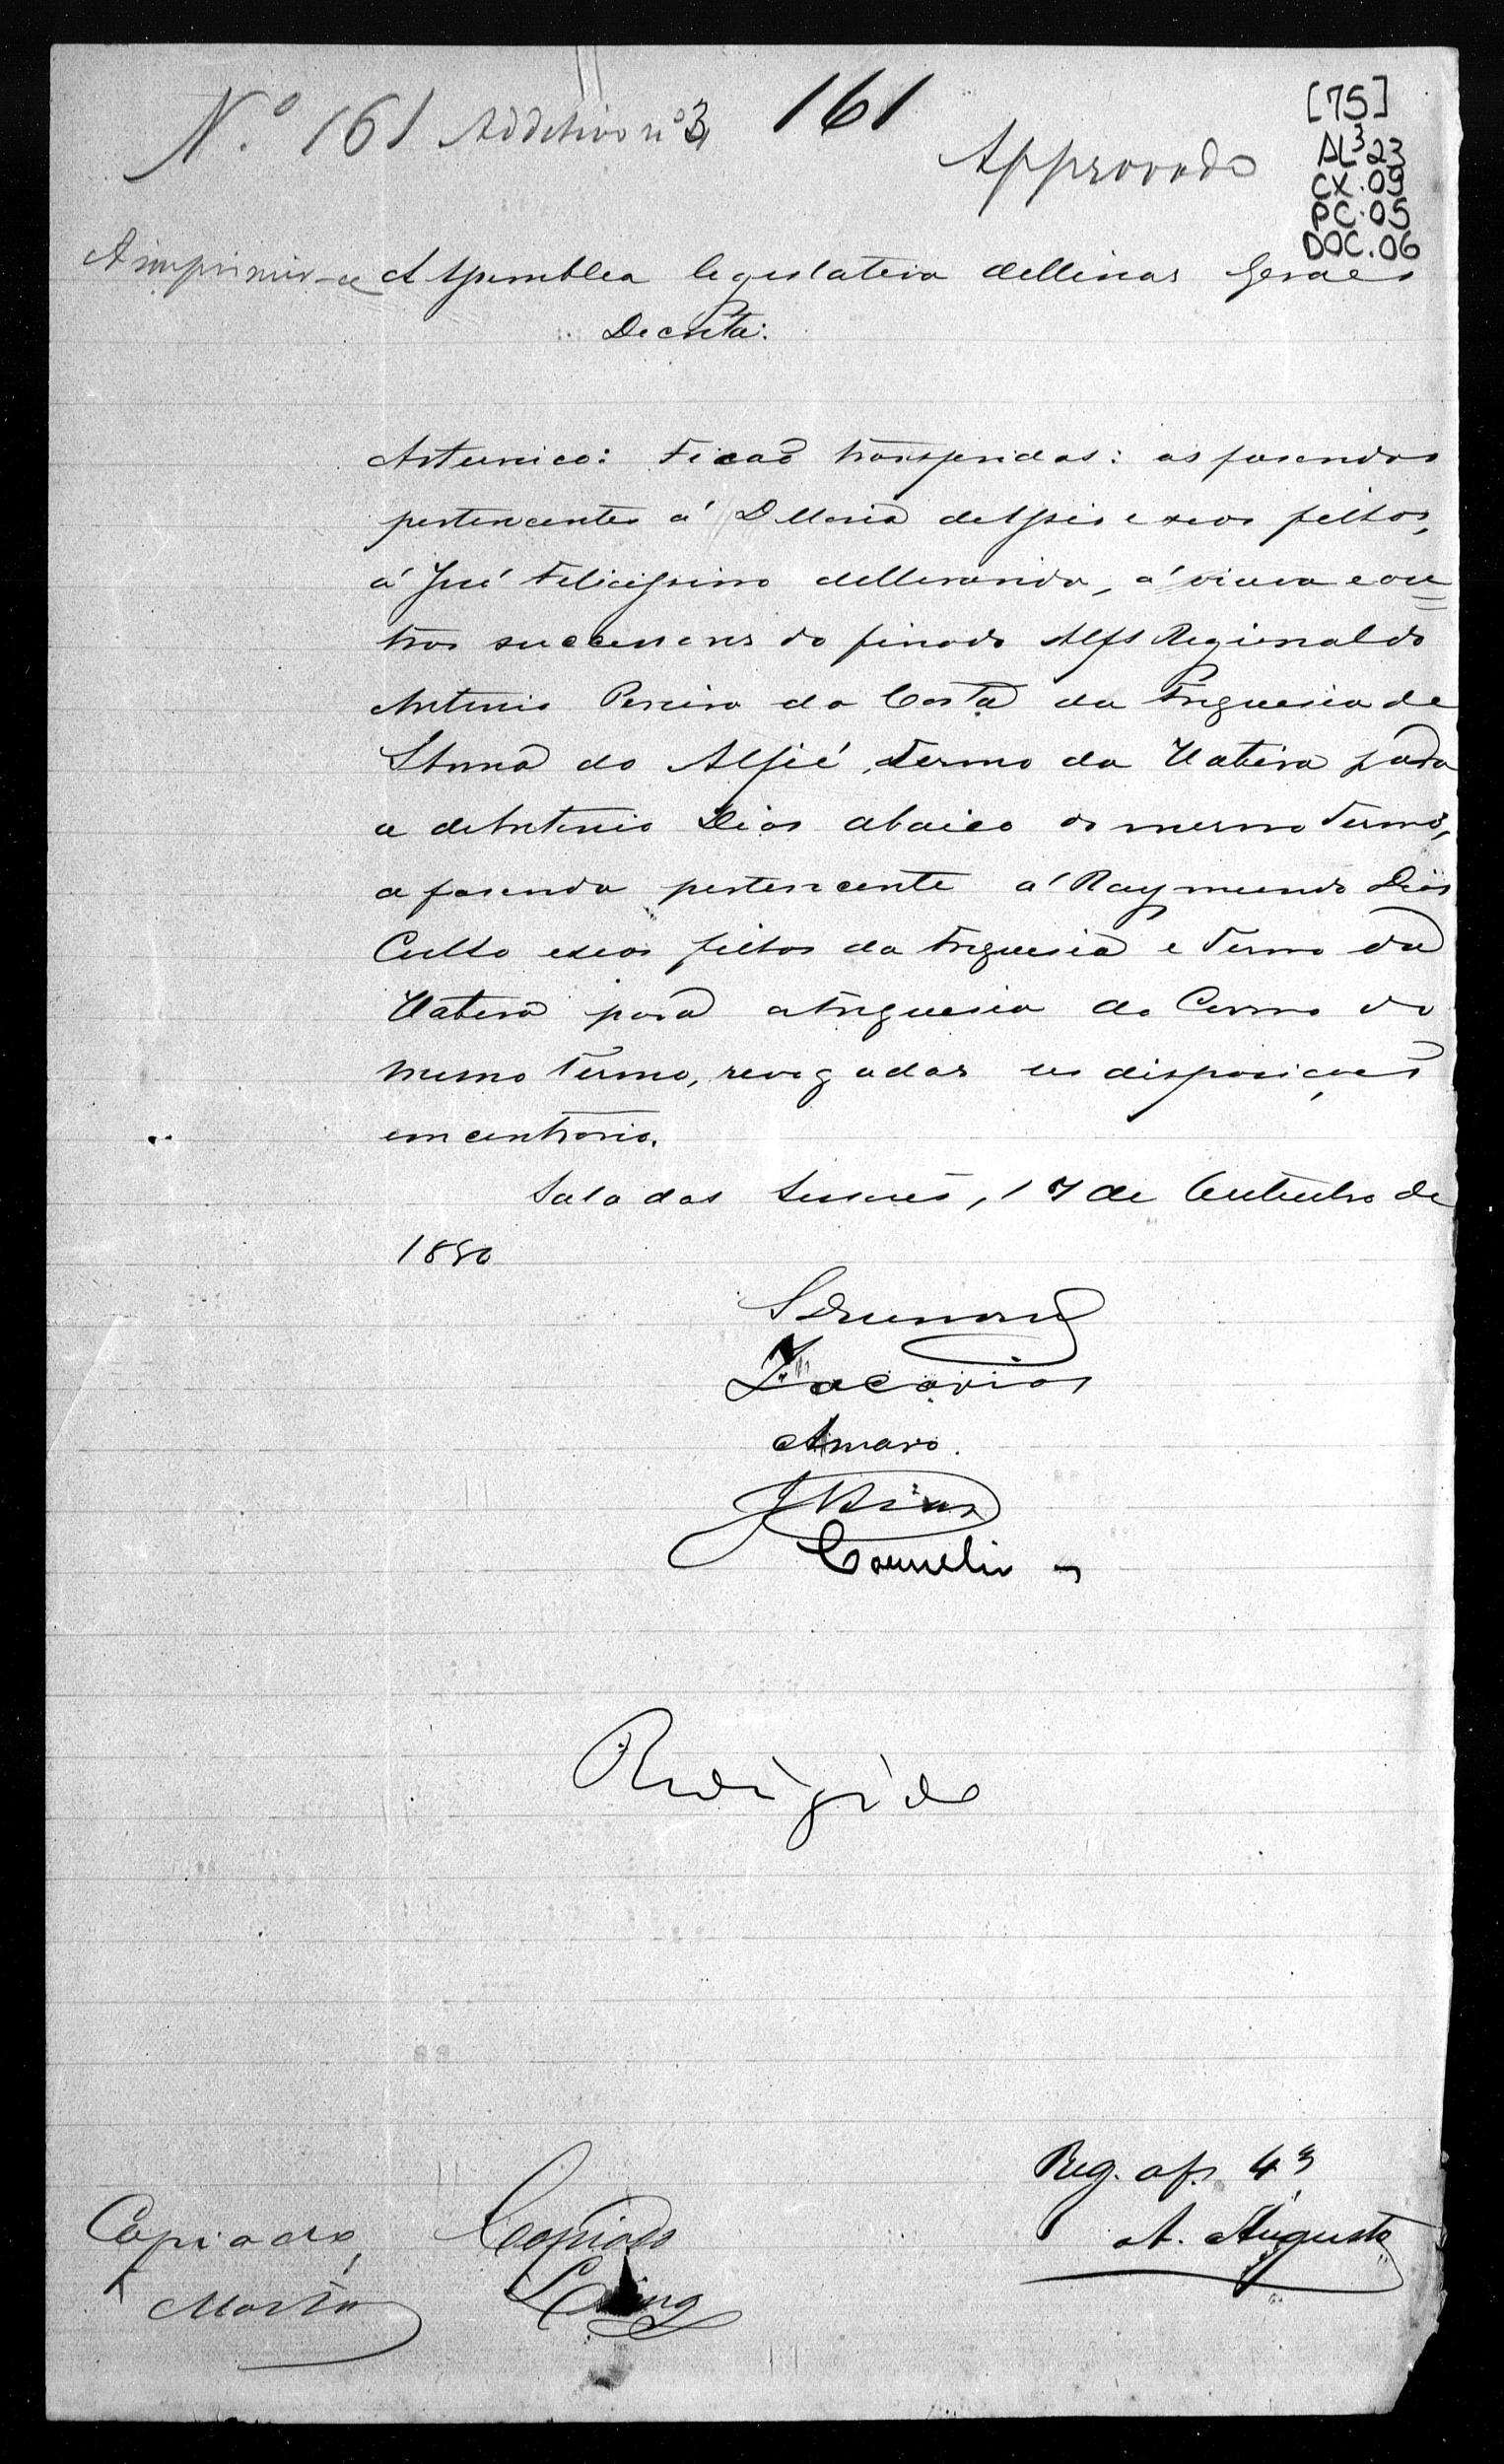 Nº 161 Additivo nº 3 161
Approvado
[75]
AL³23
CX.09
PC.05
DOC.06
A imprimir-se A Assemblea legislativa de Minas Geraes
Decreta:
Art unico: Ficaõ transferidas: as fasendas
pertencentes á D Maria de Assis e seos filhos,
á José Felicissimo de Miranda, á viuva e ou=
tros successores do finado Alfs Reginaldo
Antonio Pereira da Costa da freguesia de
S Anna do Alfié, Termo da Itabira para
a de Antonio Dias abaixo do mesmo Termo,
a fasenda pertencente á Raymundo Dias
e seos filhos da freguesia e Termo da
Itabira para a freguesia do Carmo do
mesmo Termo, revogadas as disposiçoẽs
em contrario.
Sala das Sessoẽs, 17 de Outubro de
1880
S Drumond
Zacarias
Amaro.
J Dias
Cornelio
Redigido
Reg. a fs. 43
A. Augusto
Copiado, Copiado